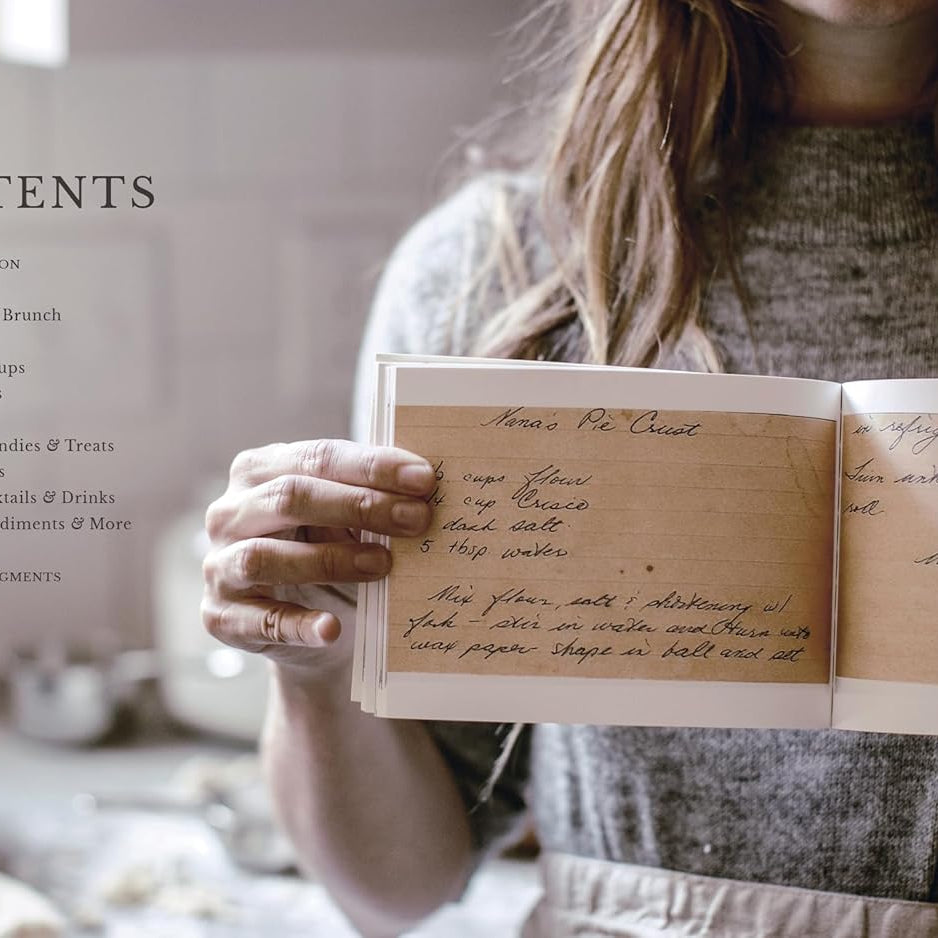 TENTS
ON
Brunch
ups
s
ndies & Treats
s
ktails & Drinks
diments & More
GMENTS
Nana's Pie Crust
cups flour
cup Crisco
dash salt
5 tbsp water
Mix flour, salt & shortening w/
fork - stir in water and turn onto
wax paper shape in ball and set
in refrig
Turn
roll